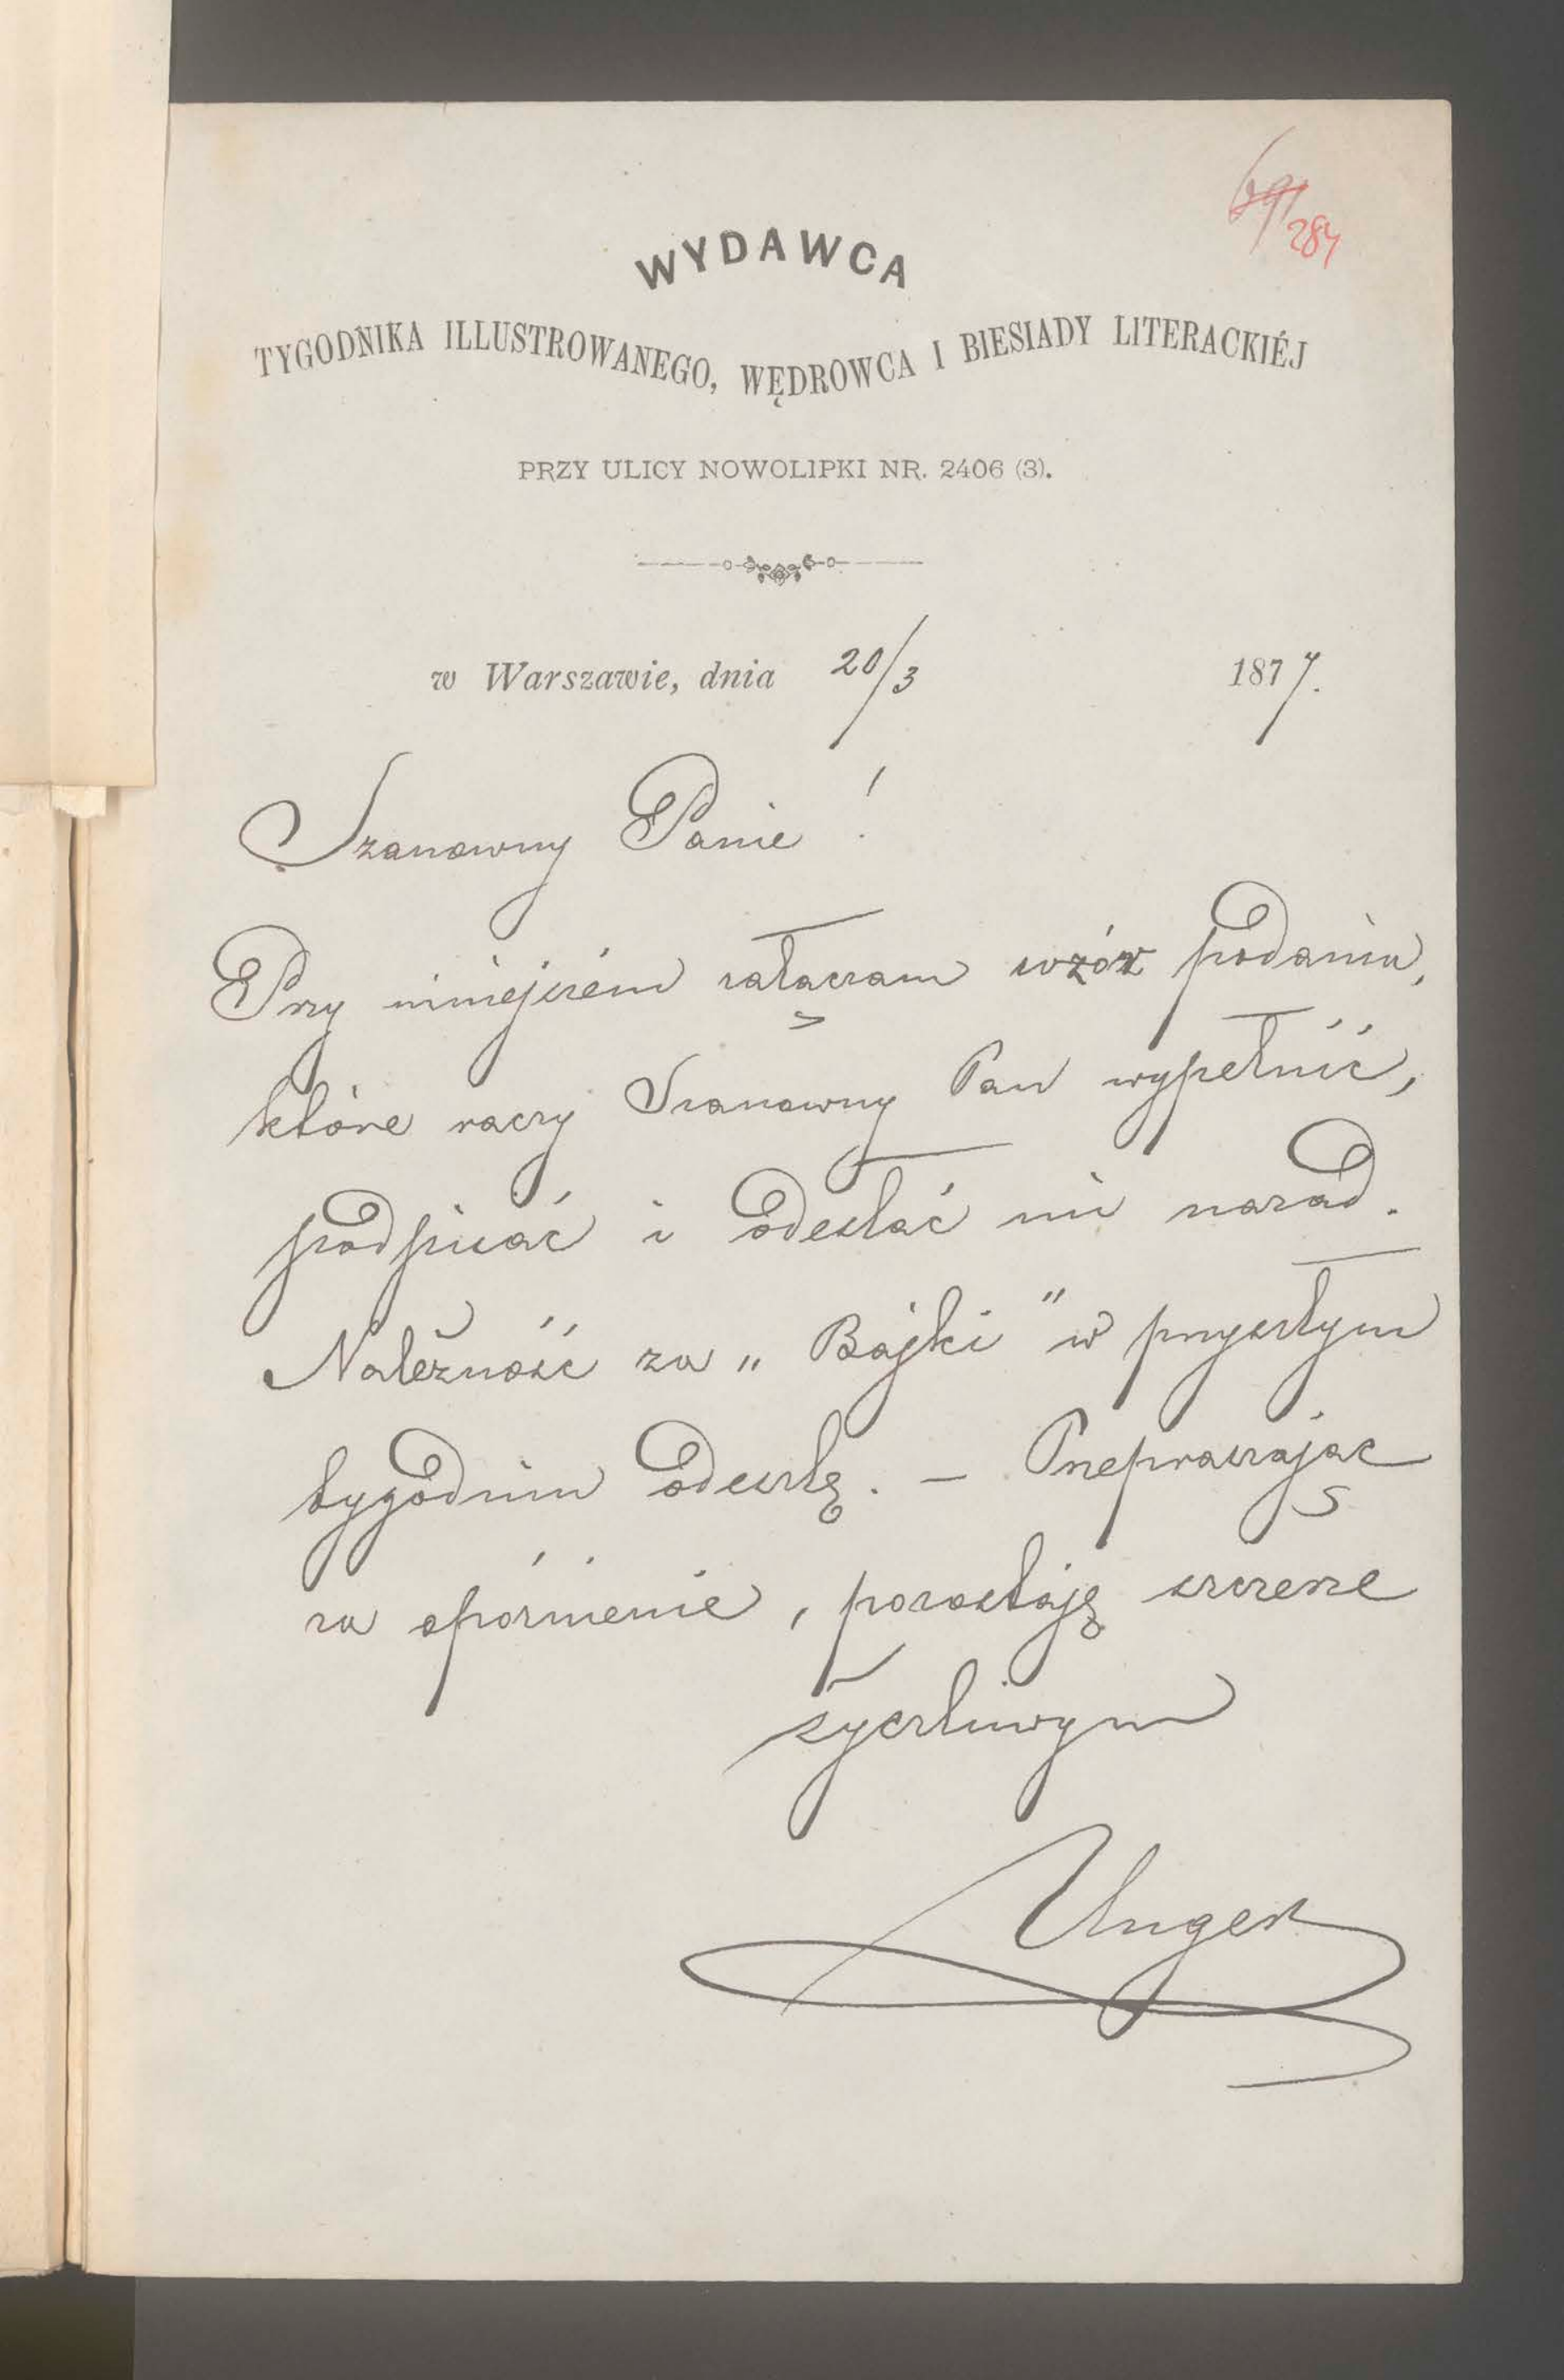 69 284
WYDAWCA
TYGODNIKA ILLUSTROWANEGO, WĘDROWCA I BIESIADY LITERACKIÉJ
PRZY ULICY NOWOLIPKI NR. 2406 (3).
w Warszawie, dnia 20/3 1877.
Szanowny Panie!
Przy niniejszém załączam wzór podania,
które raczy Szanowny Pan wypełnić,
podpisać i odesłać mi nazad.
Należność za „Bajki" w przyszłym
tygodniu odeszlę. — Przepraszając
za opóźnienie, pozostaję szczerze
życzliwym
Unger